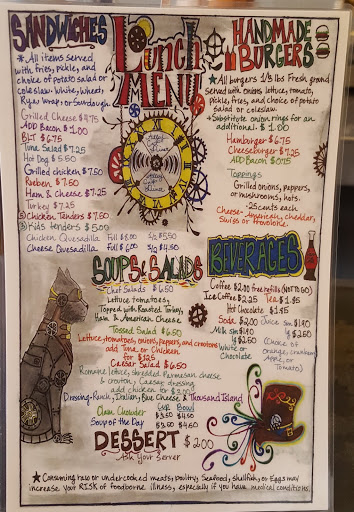 SANDWICHES
* All items served
with fries, pickle, and
choice of potato salad or
coleslaw. White, wheat,
Rye, wrap, or Sourdough.
Grilled Cheese $4.75
ADD Bacon $1.00
BLT $6.75
Tuna Salad $7.25
Hot Dog $5.50
Grilled chicken $7.50
Reuben $7.50
Ham & Cheese $7.25
Turkey $7.25
Chicken Tenders $7.50
Kids tenders $5.00
Chicken Quesadilla Full $8.00 1/2 $5.50
Cheese Quesadilla Full $6.00 1/2 $4.50
Lunch
MENU
HANDMADE
BURGERS
* All burgers 1/3 lbs Fresh ground
served with onions lettuce, tomato,
pickle, fries, and choice of potato
salad or coleslaw.
* Substitute onion rings for an
additional $1.00
Hamburger $6.75
Cheeseburger $7.25
ADD Bacon $0.75
Toppings
Grilled onions, peppers,
or mushrooms, hots.
-25cents each
Cheese - American, cheddar,
Swiss or provolone.
SOUPS & SALADS
Chef Salads $6.50
Lettuce, tomatoes,
Topped with Roasted Turkey,
Ham & American Cheese
Tossed Salad $6.50
Lettuce, tomatoes, onions, peppers, and croutons
add Tuna or Chicken
for $1.25
Caesar Salad $6.50
Romaine lettuce, shredded Parmesan cheese
& crouton, Caesar dressing
add chicken for $2.00
Dressing - Ranch, Italian, Blue Cheese & Thousand Island
Cup Bowl
Clam Chowder $3.50 $4.50
Soup of the Day $3.50 $4.50
BEVERAGES
Coffee $2.00 free refills (NOT TO GO)
Ice Coffee $2.25 Tea $1.95
Hot Chocolate $1.95
Soda $2.00 Juice Sm $1.90
Milk Sm $1.90 lg $2.50
lg $2.50
White or
Chocolate
(Choice of
orange, cranberry,
Apple, or
Tomato)
DESSERT $2.00
Ask Your Server
★ Consuming raw or undercooked meats, poultry, Seafood, shellfish, or Eggs may
increase your RISK of foodborne illness, especially if you have medical conditions.